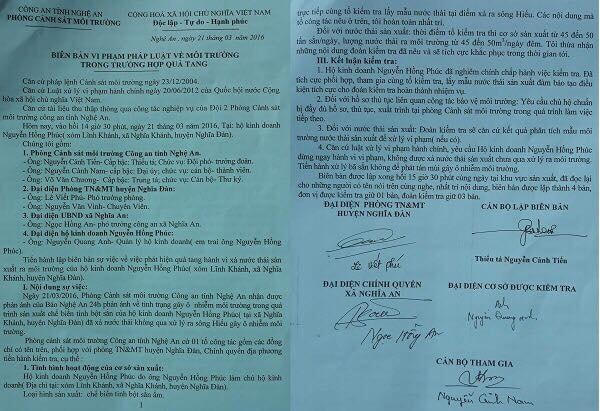 CÔNG AN TỈNH NGHỆ AN
PHÒNG CẢNH SÁT MÔI TRƯỜNG
CỘNG HOÀ XÃ HỘI CHỦ NGHĨA VIỆT NAM
Độc lập - Tự do - Hạnh phúc
Nghệ An, ngày 21 tháng 03 năm 2016
BIÊN BẢN VI PHẠM PHÁP LUẬT VỀ MÔI TRƯỜNG
TRONG TRƯỜNG HỢP QUẢ TANG
Căn cứ pháp lệnh Cảnh sát môi trường ngày 23/12/2004.
Căn cứ Luật xử lý vi phạm hành chính ngày 20/06/2012 của Quốc hội nước Cộng
hòa xã hội chủ nghĩa Việt Nam.
Căn cứ tài liệu thu thập thông qua công tác nghiệp vụ của Đội 2 Phòng Cảnh sát
môi trường công an tỉnh Nghệ An.
Hôm nay, vào hồi 14 giờ 30 phút, ngày 21 tháng 03 năm 2016, Tại: hộ kinh doanh
Nguyễn Hồng Phúc( xóm Lĩnh Khánh, xã Nghĩa Khánh, huyện Nghĩa Đàn).
Chúng tôi gồm:
1. Phòng Cảnh sát môi trường Công an tỉnh Nghệ An.
-Ông: Nguyễn Cảnh Tiến- Cấp bậc: Thiếu tá; Chức vụ: Đội phó- trưởng đoàn.
-Ông: Nguyễn Cảnh Nam- cấp bậc: Đại úy; chức vụ: cán bộ- thành viên.
-Ông: Võ Văn Chương- Cấp bậc: Trung tá; Chức vụ: Cán bộ- Thư ký.
2. Đại diện Phòng TN&MT huyện Nghĩa Đàn:
-Ông: Lê Viết Phú- Phó trưởng phòng.
-Ông: Nguyễn Văn Vinh- Chuyên Viên.
3. Đại diện UBND xã Nghĩa An:
- Ông: Ngọc Hồng An- phó trưởng công an xã Nghĩa An.
4. Đại diện hộ kinh doanh Nguyễn Hồng Phúc:
- Ông: Nguyễn Quang Anh- Quản lý hộ kinh doanh( em trai ông Nguyễn Hồng
Phúc).
Tiến hành lập biên bản sự việc về việc phát hiện quả tang hành vi xả nước thải sản
xuất ra môi trường của hộ kinh doanh Nguyễn Hồng Phúc( xóm Lĩnh Khánh, xã Nghĩa
Khánh, huyện Nghĩa Đàn).
I. Nội dung sự việc:
Ngày 21/03/2016, Phòng Cảnh sát môi trường Công an tỉnh Nghệ An nhận được
phản ánh của Báo Nghệ An 24h phản ánh về tình trạng gây ô nhiễm môi trường trong quá
trình sản xuất chế biến tinh bột sắn của hộ kinh doanh Nguyễn Hồng Phúc( tại xã Nghĩa
Khánh, huyện Nghĩa Đàn) đã xả nước thải không qua xử lý ra sông Hiếu gây ô nhiễm môi
trường.
Phòng cảnh sát môi trường Công an tỉnh Nghệ An cử 01 tổ công tác gồm các đồng
chí có tên trên, phối hợp với phòng TN&MT huyện Nghĩa Đàn, Chính quyền địa phương
tiến hành kiểm tra, cụ thể:
1. Tình hình hoạt động của cơ sở sản xuất:
Hộ kinh doanh Nguyễn Hồng Phúc do ông Nguyễn Hồng Phúc làm chủ hộ kinh
doanh( Địa chỉ tại: xóm Lĩnh Khánh, xã Nghĩa Khánh, huyện Nghĩa Đàn).
Loại hình sản xuất: chế biến tinh bột sắn ẩm.
1
trực tiếp cùng tổ kiểm tra lấy mẫu nước thải tại điểm xả ra sông Hiếu. Các nội dung mà
tổ công tác nêu ở trên, tôi hoàn toàn nhất trí.
Đối với nước thải sản xuất: thời điểm tổ kiểm tra thì cơ sở sản xuất từ 45 đến 50
tấn sắn/ngày, lượng nước thải ra môi trường từ 45 đến 50m³/ngày đêm. Tôi thừa nhận
những nội dung đoàn kiểm tra đã nêu và sẽ tích cực khắc phục trong thời gian tới.
III. Kết luận kiểm tra:
1. Hộ kinh doanh Nguyễn Hồng Phúc đã nghiêm chỉnh chấp hành việc kiểm tra. Đã
tích cực phối hợp, tham gia cùng tổ kiểm tra, lấy mẫu nước thải sản xuất đảm bảo tạo điều
kiện tích cực cho đoàn kiểm tra hoàn thành nhiệm vụ.
2. Đối với hồ sơ thủ tục liên quan công tác bảo vệ môi trường: Yêu cầu chủ hộ chuẩn
bị đầy đủ hồ sơ, thủ tục, xuất trình tại phòng Cảnh sát môi trường trong quá trình làm việc
tiếp theo.
3. Đối với nước thải sản xuất: Đoàn kiểm tra sẽ căn cứ kết quả phân tích mẫu môi
trường nước thải sản xuất để xử lý vi phạm( nếu có).
4. Căn cứ luật xử lý vi phạm hành chính, yêu cầu Hộ kinh doanh Nguyễn Hồng Phúc
dừng ngay hành vi vi phạm, không được xả nước thải sản xuất chưa qua xử lý ra môi trường.
Tiến hành xử lý bã sắn không để phát tán mùi gây ô nhiễm môi trường.
Biên bản được lập xong hồi 15 giờ 30 phút cùng ngày tại khu vực sản xuất, đã đọc lại
cho những người có tên nói trên cùng nghe, nhất trí nội dung, biên bản được lập thành 4 bản,
đơn vị được kiểm tra giữ 01 bản, đoàn kiểm tra giữ 03 bản.
ĐẠI DIỆN PHÒNG TN&MT
HUYỆN NGHĨA ĐÀN
CÁN BỘ LẬP BIÊN BẢN
Lê Viết Phú
Thiếu tá Nguyễn Cảnh Tiến
ĐẠI DIỆN CHÍNH QUYỀN
XÃ NGHĨA AN
ĐẠI DIỆN CƠ SỞ ĐƯỢC KIỂM TRA
Anh
Nguyễn Quang Anh
Ngọc Hồng An
CÁN BỘ THAM GIA
Nguyễn Cảnh Nam